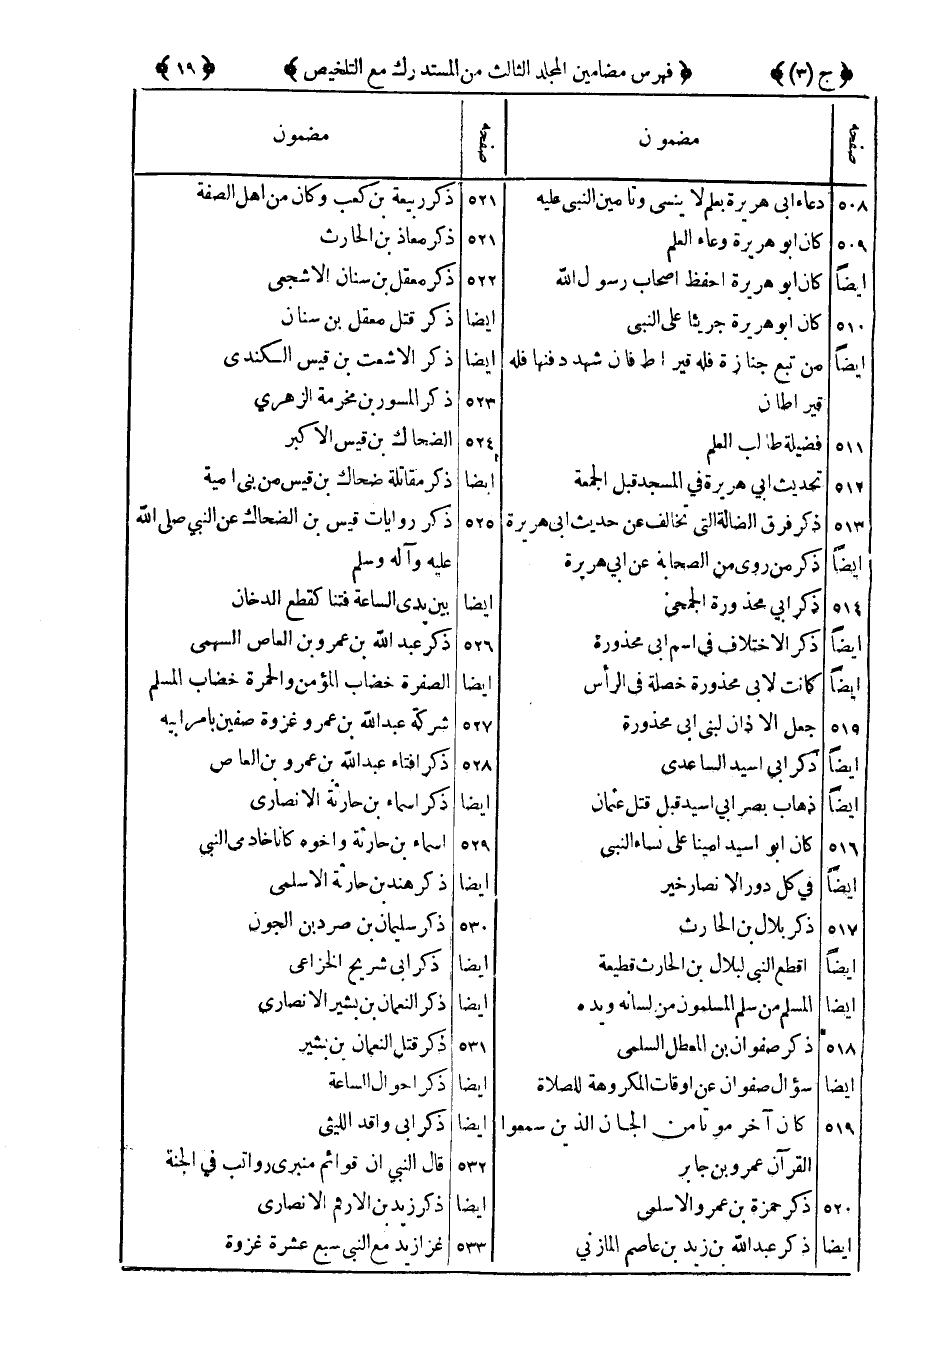 ﴿ ج (٣) ﴾ ﴿ فهرس مضامين المجلد الثالث من المستدرك مع التلخيص ﴾ ﴿ ١٩ ﴾
صفحه مضمون
٥٠٨ دعاء ابى هريرة بعلم لا ينسى وتأمين النبى عليه
٥٠٩ كان ابو هريرة وعاء العلم
ايضاً كان ابو هريرة احفظ اصحاب رسول الله
٥١٠ كان ابو هريرة جريئا على النبى
ايضاً من تبع جنازة فله قيراط فان شهد دفنها فله
قيراطان
٥١١ فضيلة طالب العلم
٥١٢ تحديث ابي هريرة في المسجد قبل الجمعة
٥١٣ ذكر فرق الضالة التى تخالف عن حديث ابى هريرة
ايضاً ذكر من روى من الصحابة عن ابي هريرة
٥١٤ ذكر ابي محذورة الجمحى
ايضاً ذكر الاختلاف في اسم ابى محذورة
ايضاً كانت لابى محذورة خصلة فى الرأس
٥١٩ جعل الاذان لبنى ابى محذورة
ايضاً ذكر ابى اسيد الساعدى
ايضاً ذهاب بصر ابي اسيد قبل قتل عثمان
٥١٦ كان ابو اسيد امينا على نساء النبى
ايضاً في كل دور الانصار خير
٥١٧ ذكر بلال بن الحارث
ايضاً اقطع النبى لبلال بن الحارث قطيعة
ايضا المسلم من سلم المسلمون من لسانه ويده
٥١٨ ذكر صفوان بن المعطل السلمى
ايضا سؤال صفوان عن اوقات المكروهة للصلاة
٥١٩ كان آخر موتا من الجان الذين سمعوا
القرآن عمرو بن جابر
٥٢٠ ذكر حمزة بن عمرو الاسلمى
ايضا ذكر عبدالله بن زيد بن عاصم المازني
صفحه مضمون
٥٢١ ذكر ربيعة بن كعب وكان من اهل الصفة
٥٢١ ذكر معاذ بن الحارث
٥٢٢ ذكر معقل بن سنان الاشجعى
ايضا ذكر قتل معقل بن سنان
ايضا ذكر الاشعث بن قيس الكندى
٥٢٣ ذكر المسور بن مخرمة الزهري
٥٢٤ الضحاك بن قيس الاكبر
ايضا ذكر مقاتلة ضحاك بن قيس من بنى امية
٥٢٥ ذكر روايات قيس بن الضحاك عن النبي صلى الله
عليه وآله وسلم
ايضا بين يدى الساعة فتنا كقطع الدخان
٥٢٦ ذكر عبد الله بن عمرو بن العاص السهمى
ايضا الصفرة خضاب المؤمن والحمرة خضاب المسلم
٥٢٧ شركة عبدالله بن عمرو غزوة صفين بامر ابيه
٥٢٨ ذكر افتاء عبدالله بن عمرو بن العاص
ايضا ذكر اسماء بن حارثة الانصارى
٥٢٩ اسماء بن حارثة واخوه كانا خادمى النبي
ايضا ذكر هند بن حارثة الاسلمى
٥٣٠ ذكر سليمان بن صرد بن الجون
ايضا ذكر ابى شريح الخزاعى
ايضا ذكر النعمان بن بشير الانصارى
٥٣١ ذكر قتل النعمان بن بشير
ايضا ذكر احوال الساعة
ايضا ذكر ابى واقد الليثى
٥٣٢ قال النبي ان قوائم منبرى رواتب في الجنة
ايضا ذكر زيد بن الارقم الانصارى
٥٣٣ غزا زيد مع النبى سبع عشرة غزوة